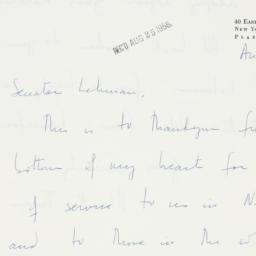 40 EAS
NEW YO
PLA
REC'D AUG 25 1958
Au
Senator Lehman,
This is to thankyou f
bottom of my heart for
of service to us in N.
and to those in the w